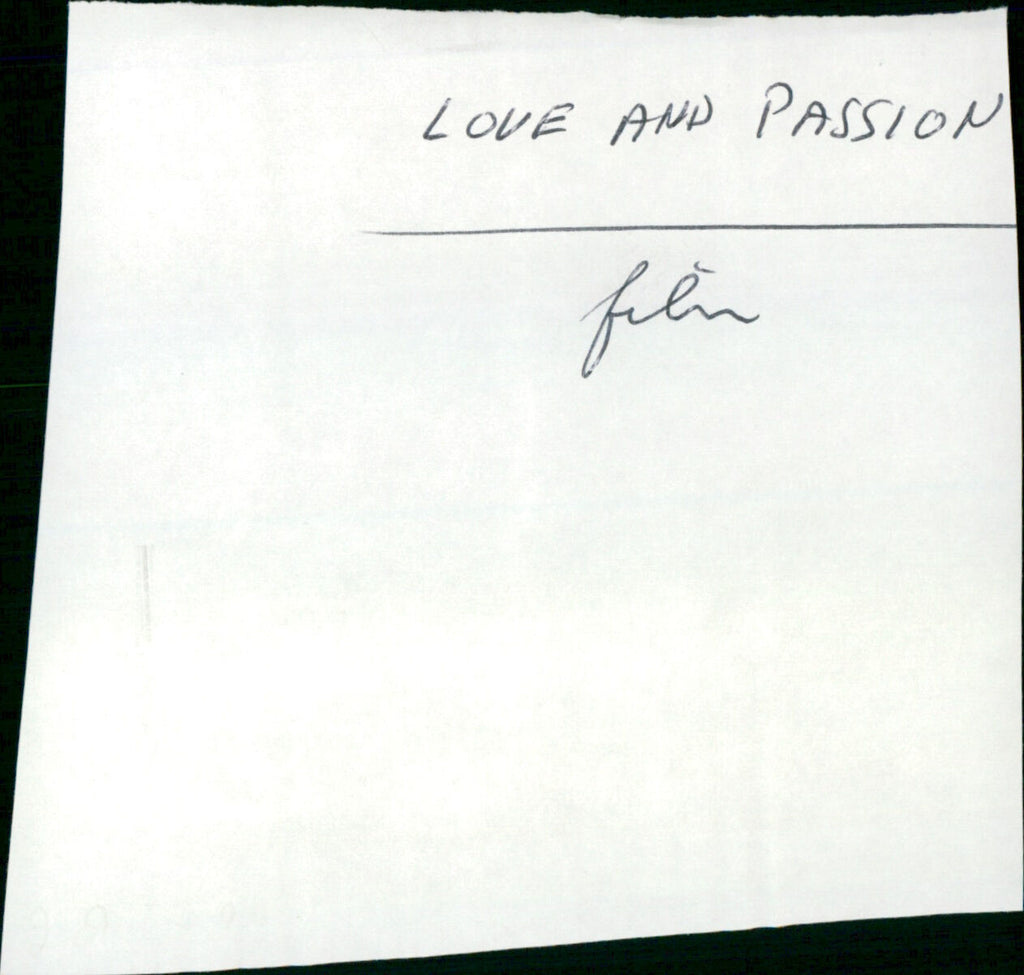 LOVE AND PASSION
film